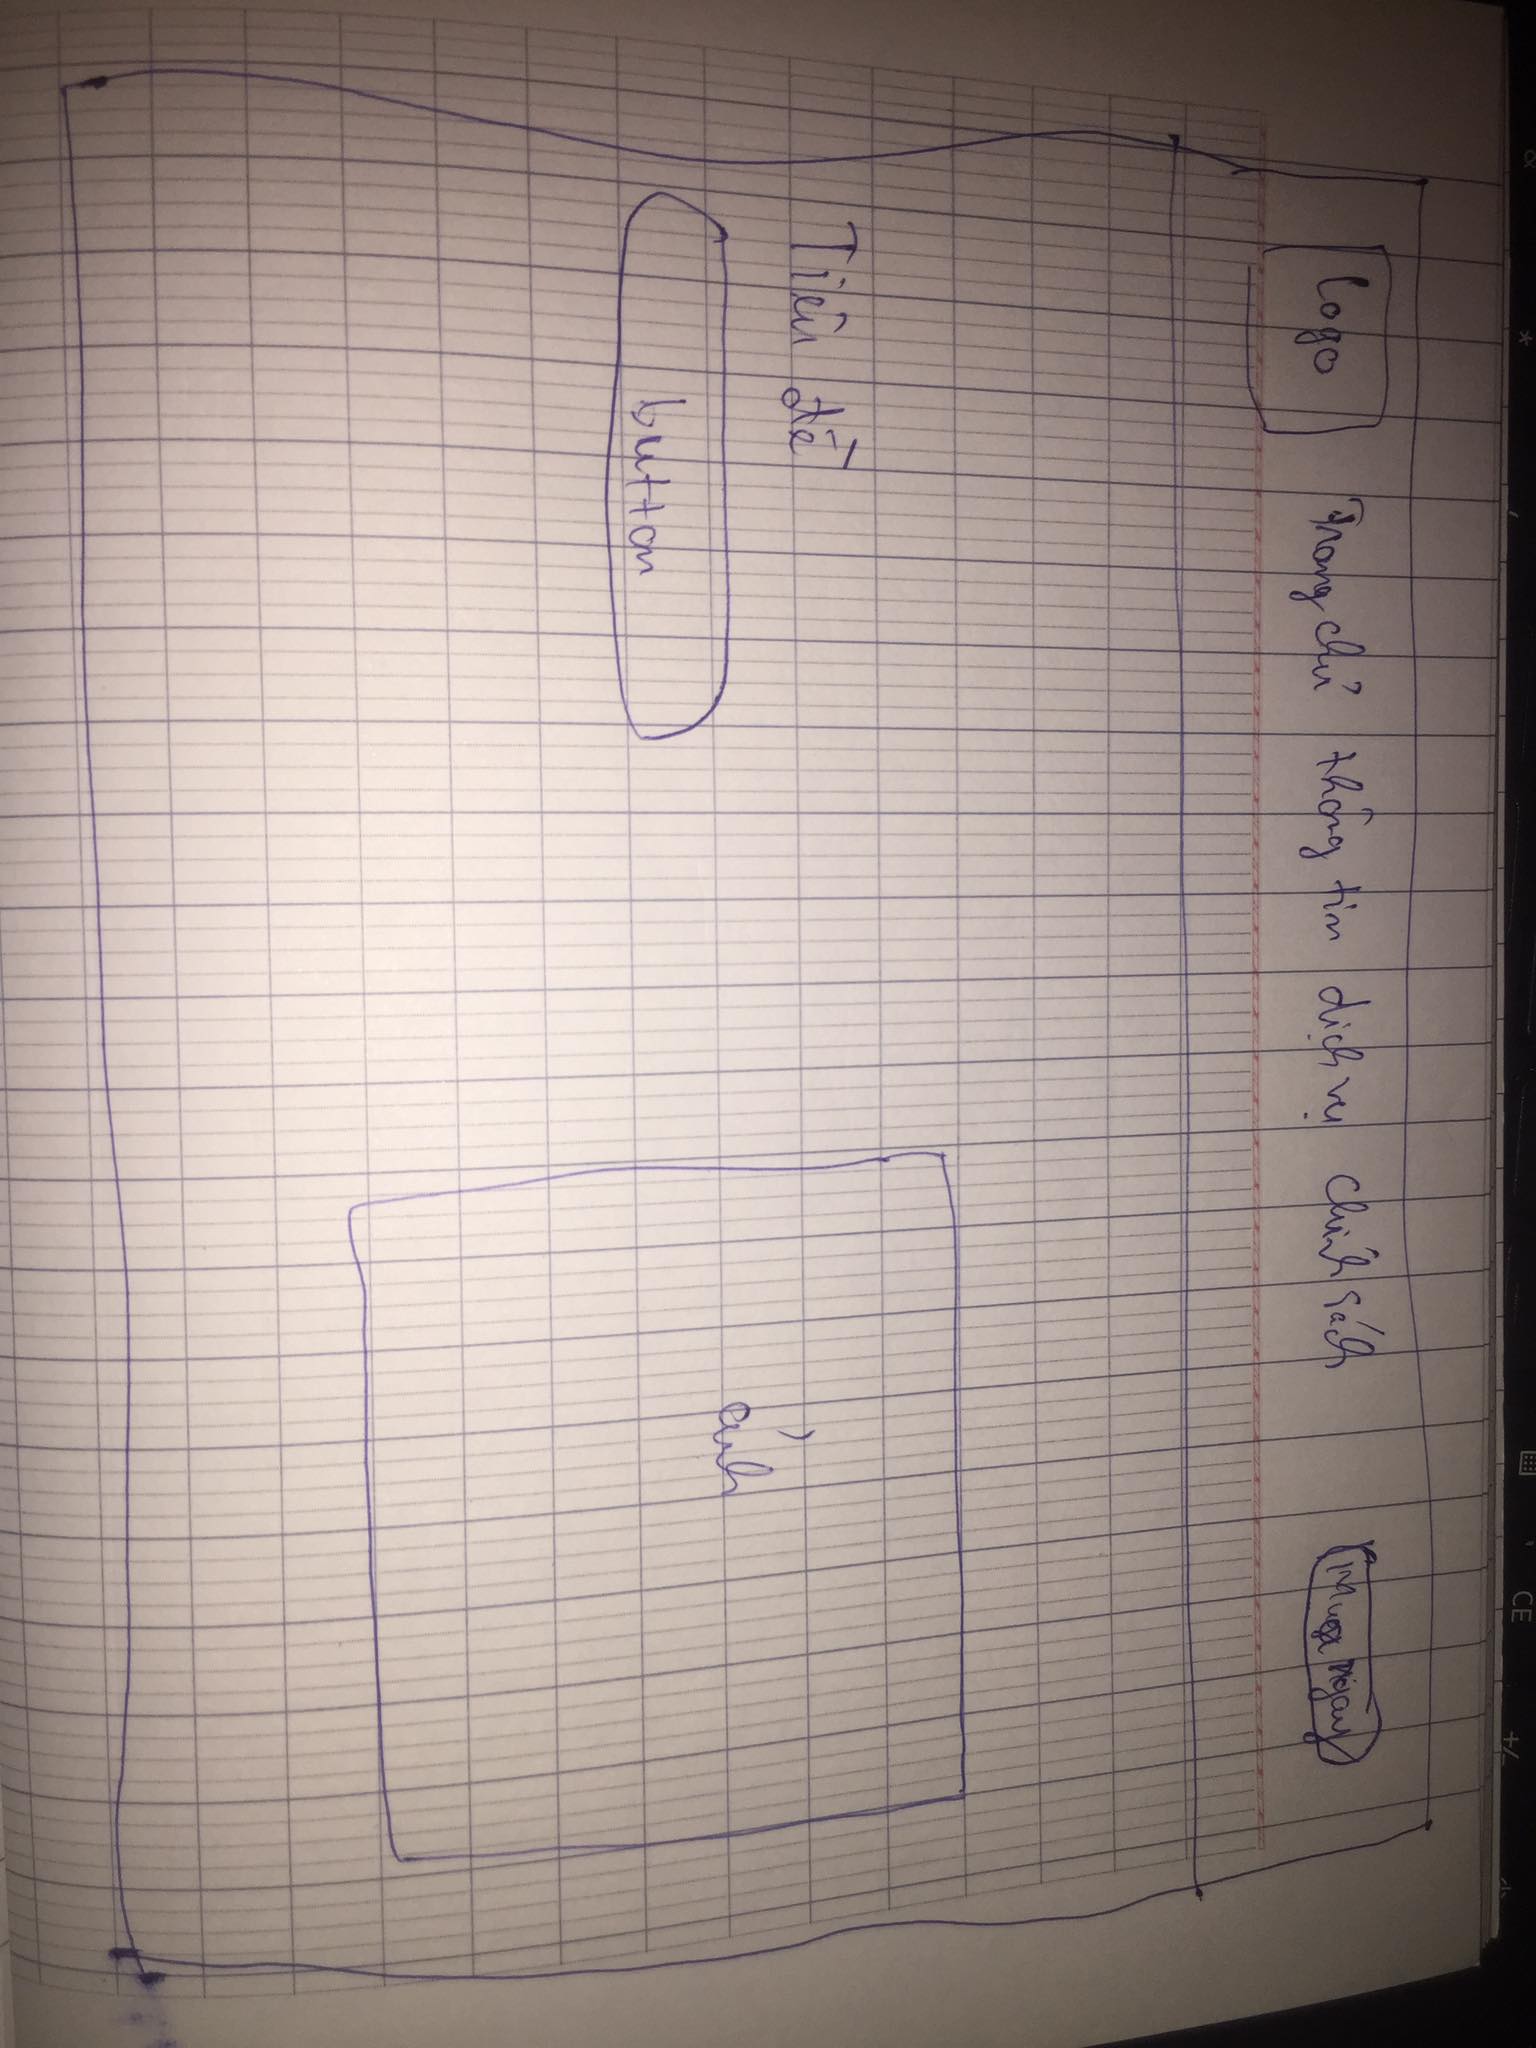 CE
+/-
Logo Trang chủ thông tin dịch vụ Chính sách Mua ngay
Tiêu đề
ảnh
button